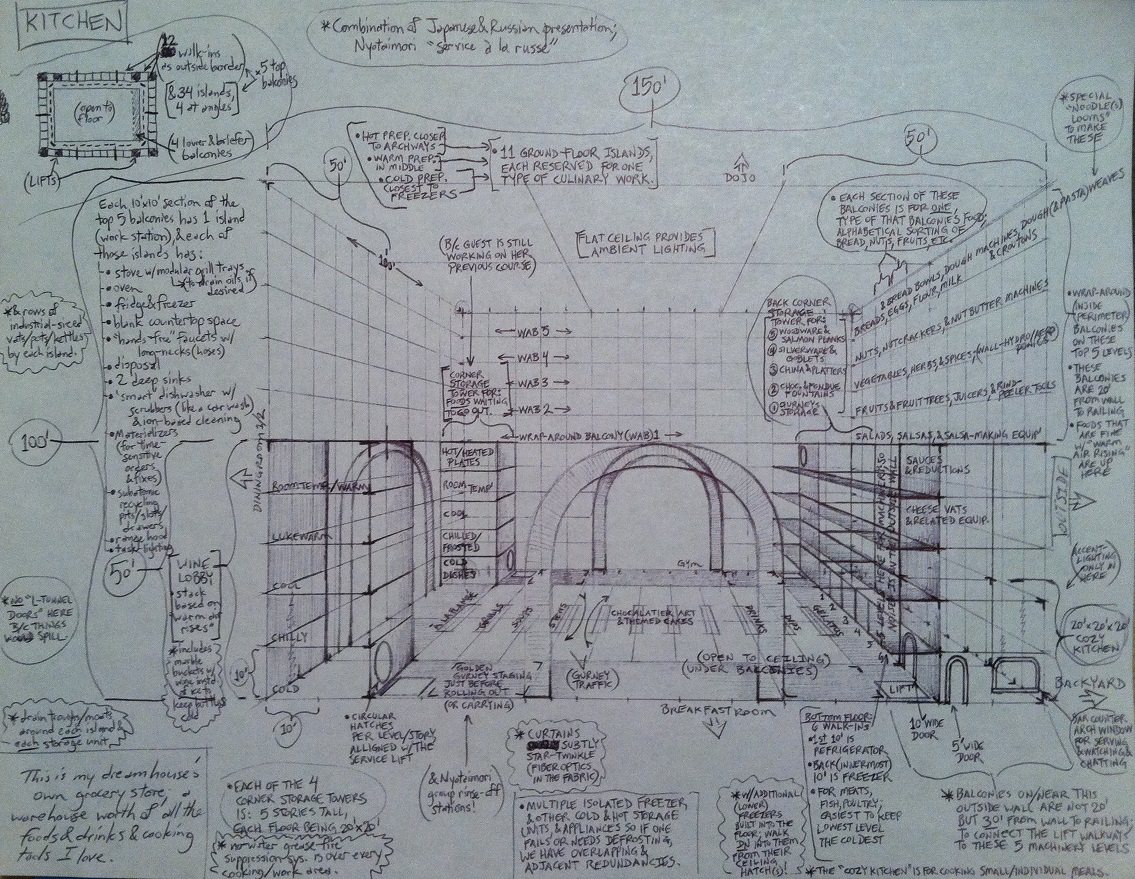 KITCHEN
*Combination of Japanese & Russian presentation;
Nyotaimori "service à la russe"
12
walk-ins
as outside border
& 34 islands,
4 at angles
* 5 top
balconies
(open to
floor)
(4 lower & briefer
balconies
(LIFTS)
150'
50'
50'
• HOT PREP. CLOSER
TO ARCHWAYS
• WARM PREP.
IN MIDDLE
• COLD PREP.
CLOSEST TO
FREEZERS
• 11 GROUND-FLOOR ISLANDS,
EACH RESERVED FOR ONE
TYPE OF CULINARY WORK.
DOJO
*SPECIAL
"NOODLE(S)
LOOMS"
TO MAKE
THESE
• EACH SECTION OF THESE
BALCONIES IS FOR ONE
TYPE OF THAT BALCONIE'S FOOD;
ALPHABETICAL SORTING OF
BREAD, NUTS, FRUITS, ETC.
Each 10'x10' section of the
top 5 balconies has 1 island
(work station), & each of
those islands has:
• stove w/modular grill trays
(to drain oils, if
desired)
• oven
• fridge & freezer
• blank countertop space
• "hands-free" faucets w/
long-necks (hoses)
• disposal
• 2 deep sinks
• "smart" dishwasher w/
scrubbers (like a car wash)
& ion-based cleaning
• Materializers
(for time-
sensitive
orders
& fixes)
• subatomic
recycling
pits/slots/
drawers
• range hood
• task-lighting
*& rows of
industrial-sized
vats/pots/kettles
by each island.
(B/c GUEST IS STILL
WORKING ON HER
PREVIOUS COURSE)
FLAT CEILING PROVIDES
AMBIENT LIGHTING
DOUGH (& PASTA) WEAVES
& BREAD BOWLS, DOUGH MACHINES,
& CROUTONS
BREADS, EGGS, FLOUR, MILK
NUTS, NUTCRACKERS, & NUT BUTTER MACHINES
VEGETABLES, HERBS & SPICES; WALL-HYDRO/AEROPONICS
FRUITS & FRUIT TREES, JUICERS, & RIND-
PEELER TOOLS
SALADS, SALSAS, & SALSA-MAKING EQUIP.
• WRAP-AROUND
(INSIDE
PERIMETER)
BALCONIES
ON THESE
TOP 5 LEVELS
• THESE
BALCONIES
ARE 20'
FROM WALL
TO RAILING
• FOODS THAT
ARE FINE
W/"WARM
AIR RISING"
ARE UP
HERE
BACK CORNER
STORAGE
TOWER FOR:
⑤ WOODWARE &
SALMON PLANKS
④ SILVERWARE &
GOBLETS
③ CHINA & PLATTERS
② CHOC. & FONDUE
FOUNTAINS
① GURNEYS
STORAGE
← WAB 5 →
← WAB 4 →
← WAB 3 →
← WAB 2 →
CORNER
STORAGE
TOWER FOR
FOODS WAITING
TO GO OUT.
← WRAP-AROUND BALCONY (WAB) 1 →
100'
DINING ROOM, ETC.
HOT/HEATED
PLATES
ROOM TEMP
COOL
CHILLED/
FROSTED
COLD
DISHES
ROOM TEMP/WARM
LUKEWARM
COOL
CHILLY
COLD
SAUCES
& REDUCTIONS
CHEESE VATS
& RELATED EQUIP.
OUTSIDE
ACCENT-
LIGHTING
ONLY IN
HERE
20'x20'x20'
COZY
KITCHEN
BACKYARD
BAR COUNTER
ARCH WINDOW
FOR SERVING
& WATCHING &
CHATTING
50'
WINE
LOBBY
• stack
based on
"warm air
rises"
*includes
marble
buckets w/
*NO "L-TUNNEL
DOORS" HERE
B/C THINGS
WOULD SPILL.
*drain troughs/moats
around each island &
each storage unit.
10'
10'
GYM
À LA BRAISE
STEWS
CHOCALATIER ART
& THEMED CAKES
GELATINS
(GURNEY
TRAFFIC)
(OPEN TO CEILING)
(UNDER BALCONIES)
GOLDEN
GURNEY STAGING
JUST BEFORE
ROLLING OUT
(OR CARRYING)
BREAKFAST ROOM
LIFT
10' WIDE
DOOR
5' WIDE
DOOR
• CIRCULAR
HATCHES
PER LEVEL/STORY
ALLIGNED w/THE
SERVICE LIFT
(& Nyotaimori
group rinse-off
stations!)
*CURTAINS
SUBTLY
STAR-TWINKLE
(FIBER OPTICS
IN THE FABRIC)
BOTTOM FLOOR:
6 WALK-INS
• 1st 10' IS
REFRIGERATOR
• BACK (INNERMOST)
10' IS FREEZER
• FOR MEATS,
FISH, POULTRY;
EASIEST TO KEEP
LOWEST LEVEL
THE COLDEST
This is my dreamhouse's
own grocery store; a
warehouse worth of all the
foods & drinks & cooking
tools I love.
• EACH OF THE 4
CORNER STORAGE TOWERS
IS: 5 STORIES TALL,
EACH FLOOR BEING 20'x20'
*no-water grease-fire
suppression sys. is over every
cooking/work area.
• MULTIPLE ISOLATED FREEZER
& OTHER COLD & HOT STORAGE
UNITS & APPLIANCES SO IF ONE
FAILS OR NEEDS DEFROSTING,
WE HAVE OVERLAPPING &
ADJACENT REDUNDANCIES.
*W/ADDITIONAL
(LOWER)
FREEZERS
BUILT INTO THE
FLOOR; WALK
DN INTO THEM
FROM THEIR
CEILING
HATCH(S)!
*BALCONIES ON/NEAR THIS
OUTSIDE WALL ARE NOT 20'
BUT 30' FROM WALL TO RAILING;
TO CONNECT THE LIFT WALKWAYS
TO THESE 5 MACHINERY LEVELS
*THE "COZY KITCHEN" IS FOR COOKING SMALL/INDIVIDUAL MEALS.